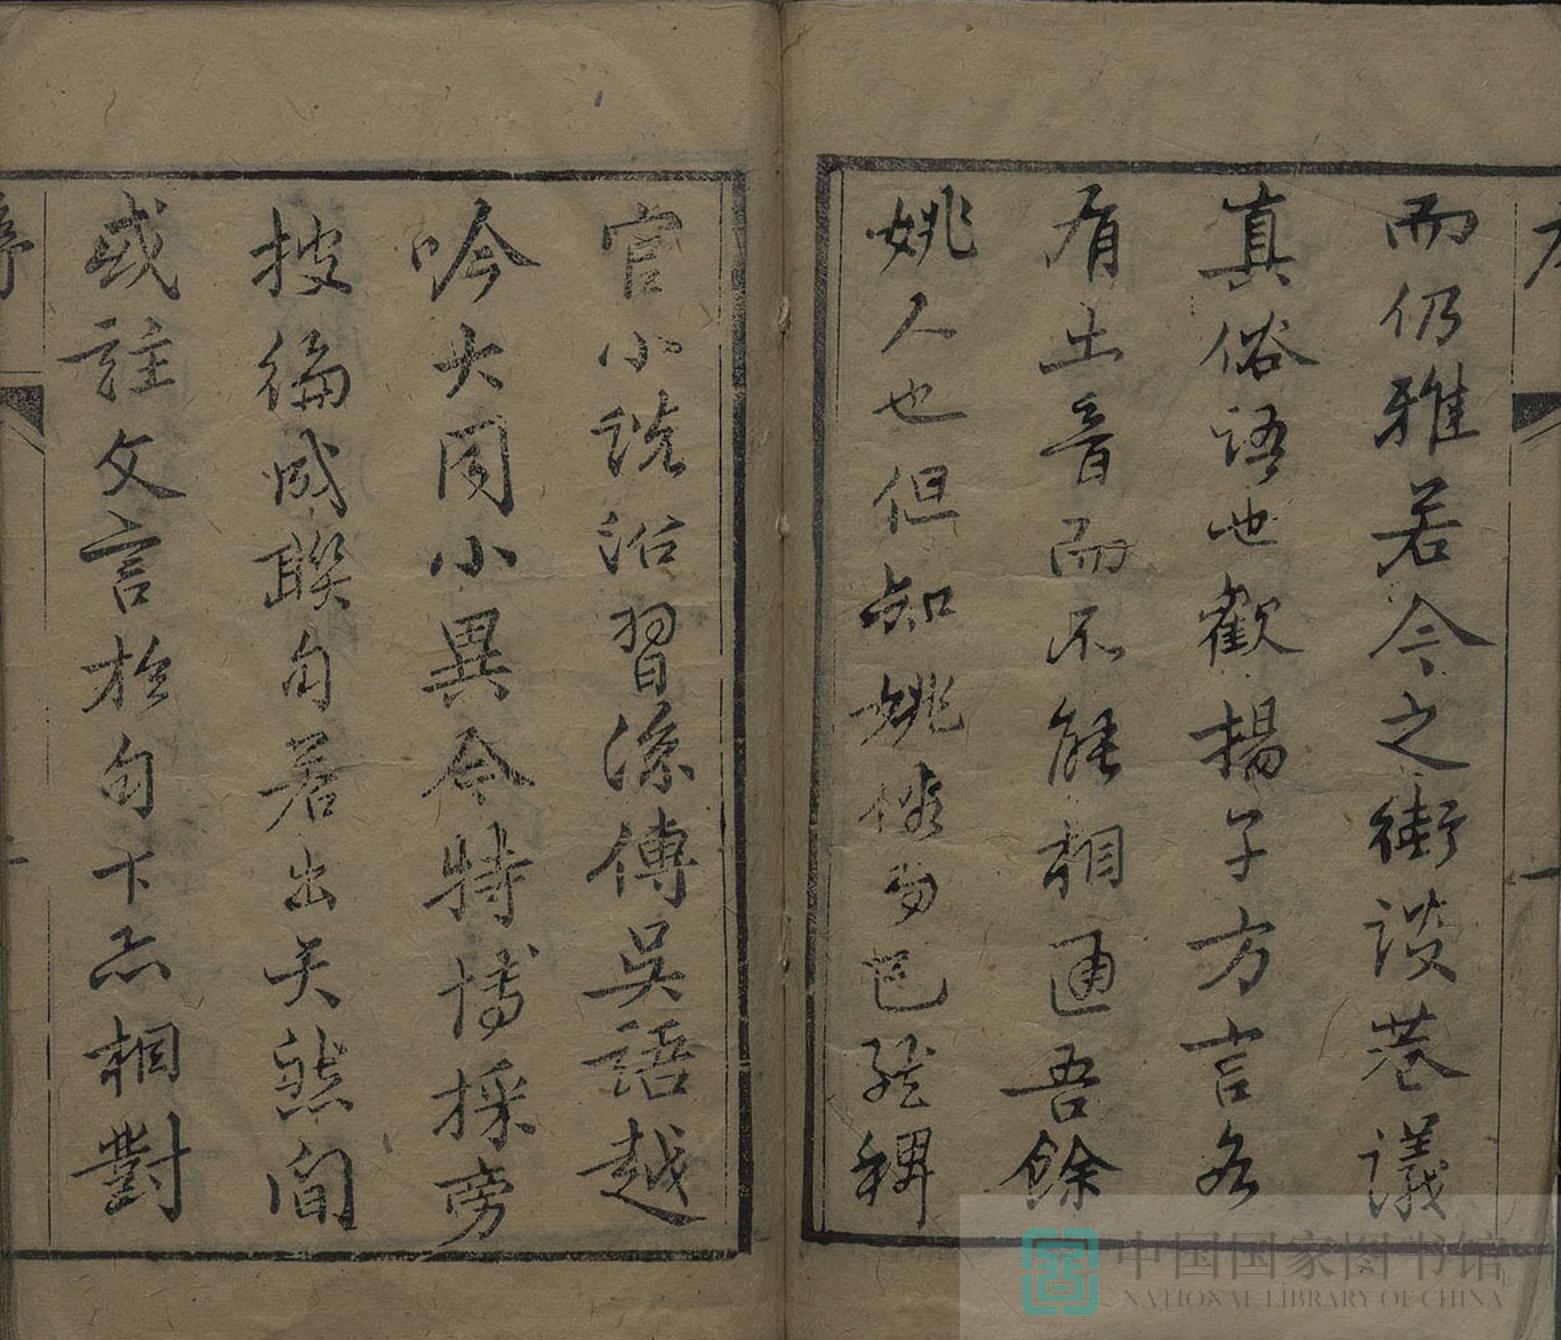 而仍雅若今之街談巷議
真俗語也歡揚子方言各
有土音而不能相通吾餘
姚人也但知姚俗而已然稗
官小說沿習流傳吳語越
吟大同小異今特博採旁
披編成聯句若出天然間
或註文言於句下亦相對
序
中国国家图书馆
NATIONAL LIBRARY OF CHINA